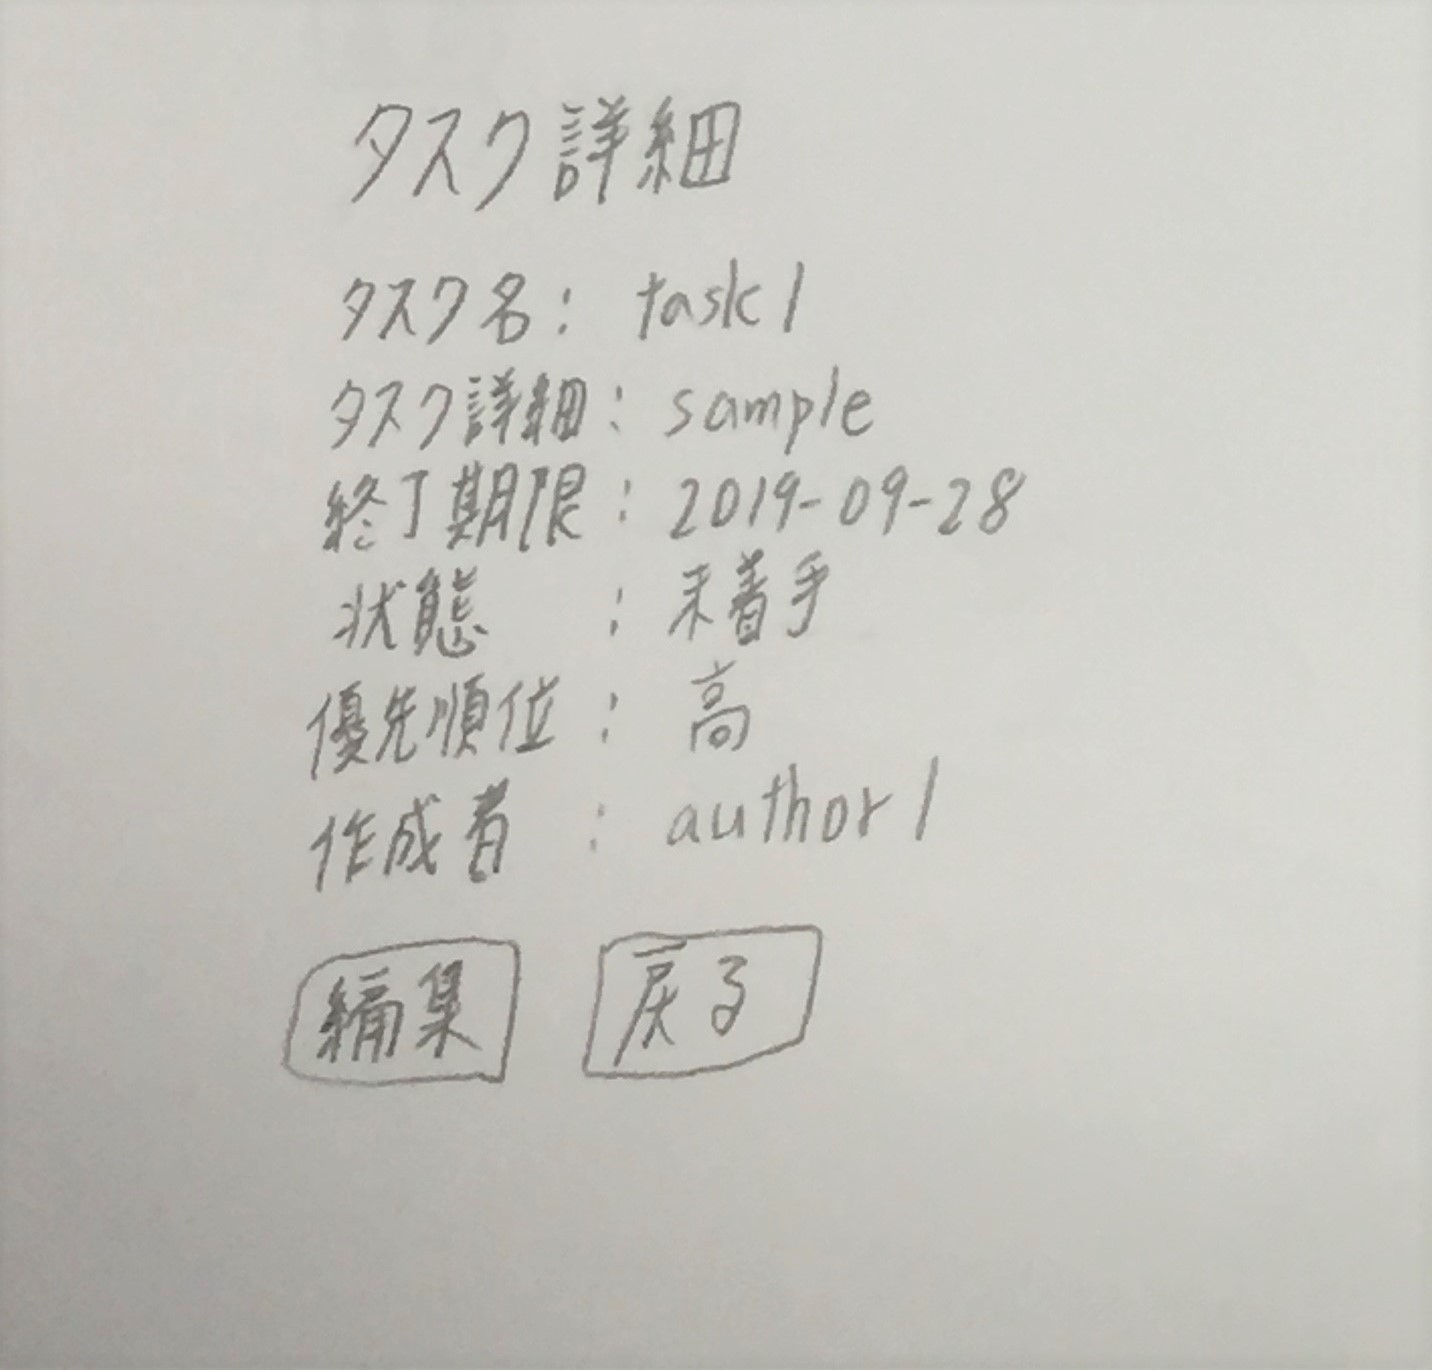 タスク詳細
タスク名: task1
タスク詳細: sample
終了期限: 2019-09-28
状態 : 未着手
優先順位: 高
作成者 : author1
編集 戻る